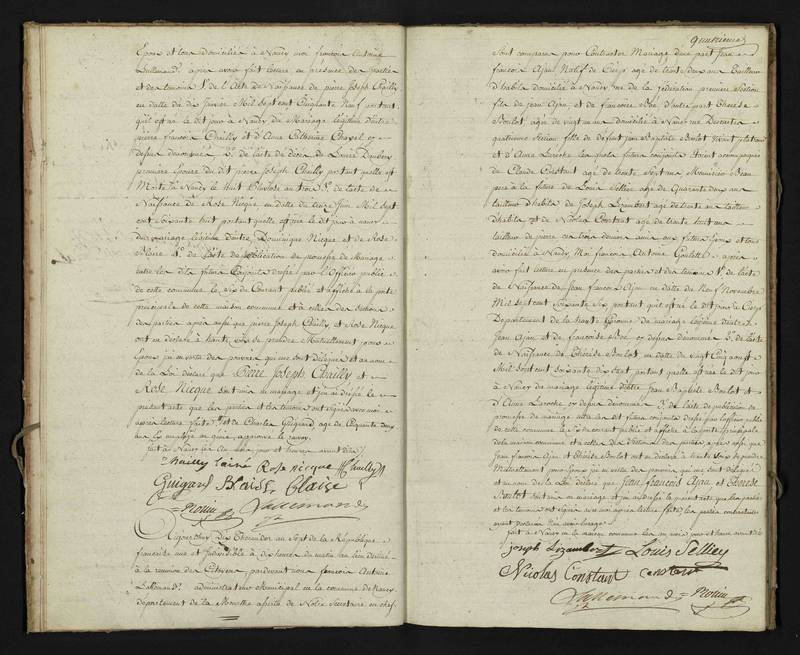 Epoux et tous domiciliés à Nancy moi françois Antoine
Lallemand, après avoir fait lecture en présence des parties
et des témoins 1.º de l'acte de Naissance de pierre Joseph Chailly
en datte du dix Janvier Mil sept cent Cinquante Neuf portant
qu'il est né le dit jour à Nancy du Mariage légitime d'entre
pierre françois Chailly et d'Anne Catherine Chapel
defunt dénommés 2.º de l'acte de décès de Louise
première Epouse du dit pierre Joseph Chailly portant qu'elle est
Morte à Nancy le huit Pluviose an trois 3.º de l'acte de
Naissance de Rose Nicque en datte du treize Juin Mil sept
cent soixante huit portant qu'elle est née le dit jour à Nancy
du mariage légitime d'entre Dominique Nicque et de Rose
4.º de l'acte de publication de promesse de mariage
entre les dits futurs Conjoints dressé par l'Officier public
de cette commune le dix du Courant publié et affiché à la porte
principale de cette maison commune et à celles des sections
des parties après aussi que pierre Joseph Chailly, et Rose Nicque
ont eu déclaré à haute voix se prendre Mutuellement pour
Epoux j'ai en vertu des pouvoirs qui me sont délégués et au nom
de la Loi déclaré que Pierre Joseph Chailly et
Rose Nicque sont unis en mariage et j'ai dressé le
présent acte que les parties et les témoins ont signé avec moi
après lecture faite
fait à Nancy les an, mois, jour et heure avant dits
Chailly Rose nicque Chailly
Guigard Blaise Blaise
Lallemand
Aujourd'huy Thermidor an Sept de la République
française une et indivisible à dix heures du matin au lieu destiné
à la reunion des Citoyens, pardevant nous françois Antoine
Lallemand, administrateur Municipal en la commune de Nancy
département de la Meurthe assisté de Notre Secretaire en chef
quinzieme
Sont comparus pour Contracter Mariage d'une part Jean
françois Ajau Natif de âgé de trente deux ans Tailleur
d'habits domicilié à Nancy rue de la fédération première section
fils de Jean Ajau et de françoise d'autre part Thérèse
Boulot, agée de vingt neuf ans domiciliée à Nancy rue Descartes
quatrieme section fille de defunt Jean Baptiste Boulot vivant
et d'Anne Laroche lesquels futurs conjoints étoient accompagnés
de Claude Constant agé de ans Menuisier Beau
père à la future de Louis Selliey agé de Quarante deux ans
tailleur d'habits de Joseph Lizambert agé de trente ans tailleur
d'habits et de Nicolas Constant agé de trente huit ans
tailleur de pierre ces trois derniers amis aux futurs Epoux et tous
domiciliés à Nancy, Moi françois Antoine après
avoir fait lecture en présence des parties et des témoins 1.º de l'acte
de Naissance de Jean françois Ajau en datte du Neuf Novembre
Mil sept cent Soixante Six portant qu'il est né le dit jour à
Département de la haute du mariage légitime d'entre
Jean Ajau et de françoise defunt dénommés 2.º de l'acte
de Naissance de Thérèse Boulot en datte du vingt Cinq aoust
Mil sept cent soixante dix portant qu'elle est née le dit jour
à Nancy du mariage légitime d'entre Jean Baptiste Boulot et
d'Anne Laroche defunt dénommés 3.º de l'acte de publication de
promesse de mariage entre les dits futurs conjoints dressé par l'officier public
de cette commune le du courant publié et affiché à la porte principale
de la maison commune et à celles des sections des parties, après aussi que
Jean françois Ajau et Thérèse Boulot ont eu déclaré à haute voix se prendre
Mutuellement pour Epoux j'ai en vertu des pouvoirs qui me sont délégués
et au nom de la Loi déclaré que Jean françois Ajau et Thérèse
Boulot sont unis en mariage et j'ai dressé le présent acte que les
et les témoins ont signé avec moi après lecture faite les parties contractantes
ayant déclaré
fait à Nancy en la maison commune les an, mois, jour et heure avant dits
Joseph Lizambert Louis Selliey
Nicolas Constant Constant
Lallemand